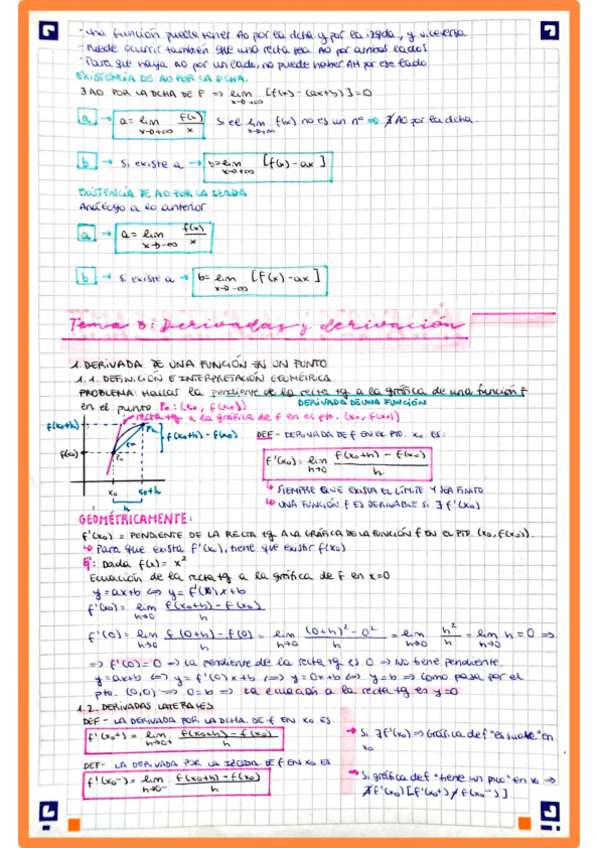 - una función puede tener AO por la dcha y por la izqda, y viceversa
- Puede ocurrir también que una recta sea AO por ambos lados
- Para que haya AO por un lado, no puede haber AH por ese lado
EXISTENCIA DE AO POR LA DCHA.
∃ AO POR LA DCHA DE F => lim x→+∞ [f(x) - (ax+b)] = 0
a → a = lim x→+∞ f(x)/x Si el lim x→+∞ f(x) no es un nº => ∄ AO por la dcha.
b → Si existe a → b = lim x→+∞ [f(x) - ax]
EXISTENCIA DE AO POR LA IZQDA
Análogo a lo anterior
a → a = lim x→-∞ f(x)/x
b → Si existe a → b = lim x→-∞ [f(x) - ax]
Tema 8: Derivadas y derivación
1. DERIVADA DE UNA FUNCIÓN EN UN PUNTO
1.1. DEFINICIÓN E INTERPRETACIÓN GEOMÉTRICA
PROBLEMA: Hallar la pendiente de la recta tg a la gráfica de una función f
en el punto P₀: (x₀, f(x₀)) DERIVADA DE UNA FUNCIÓN
recta tg a la gráfica de f en el pto. (x₀, f(x₀))
f(x₀+h) Pₕ f(x₀+h) - f(x₀)
f(x₀) P₀
x₀ x₀+h
h
DEF - DERIVADA DE f EN EL PTO. x₀ ES:
f'(x₀) = lim h→0 f(x₀+h) - f(x₀) / h
↳ SIEMPRE QUE EXISTA EL LÍMITE Y SEA FINITO
↳ UNA FUNCIÓN f ES DERIVABLE SI ∃ f'(x₀)
GEOMÉTRICAMENTE:
f'(x₀) = PENDIENTE DE LA RECTA tg A LA GRÁFICA DE LA FUNCIÓN f EN EL PTO. (x₀, f(x₀)).
↳ Para que exista f'(x₀), tiene que existir f(x₀)
Ej: Dada f(x) = x²
Ecuación de la recta tg a la gráfica de f en x=0
y = ax+b <=> y = f'(0)x + b
f'(x₀) = lim h→0 f(x₀+h) - f(x₀) / h
f'(0) = lim h→0 f(0+h) - f(0) / h = lim h→0 (0+h)² - 0² / h = lim h→0 h²/h = lim h→0 h = 0 =>
=> f'(0) = 0 → La pendiente de la recta tg es 0 → No tiene pendiente.
y = ax+b <=> y = f'(0)x + b <=> y = 0x+b <=> y = b => Como pasa por el
pto. (0,0) → 0 = b => La ecuación a la recta tg es y=0
1.2. DERIVADAS LATERALES
DEF - LA DERIVADA POR LA DCHA. DE f EN x₀ ES
f'(x₀⁺) = lim h→0⁺ f(x₀+h) - f(x₀) / h
→ Si ∃ f'(x₀) => Gráfica de f "es suave" en
x₀
DEF - LA DERIVADA POR LA IZQDA DE f EN x₀ ES
f'(x₀⁻) = lim h→0⁻ f(x₀+h) - f(x₀) / h
→ Si gráfica de f "tiene un pico" en x₀ =>
∄ f'(x₀) [f'(x₀⁺) ≠ f'(x₀⁻)]